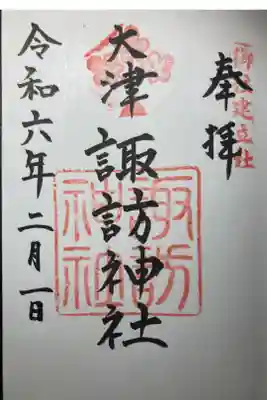 奉拝
大津諏訪神社
諏訪神社
令和六年二月一日